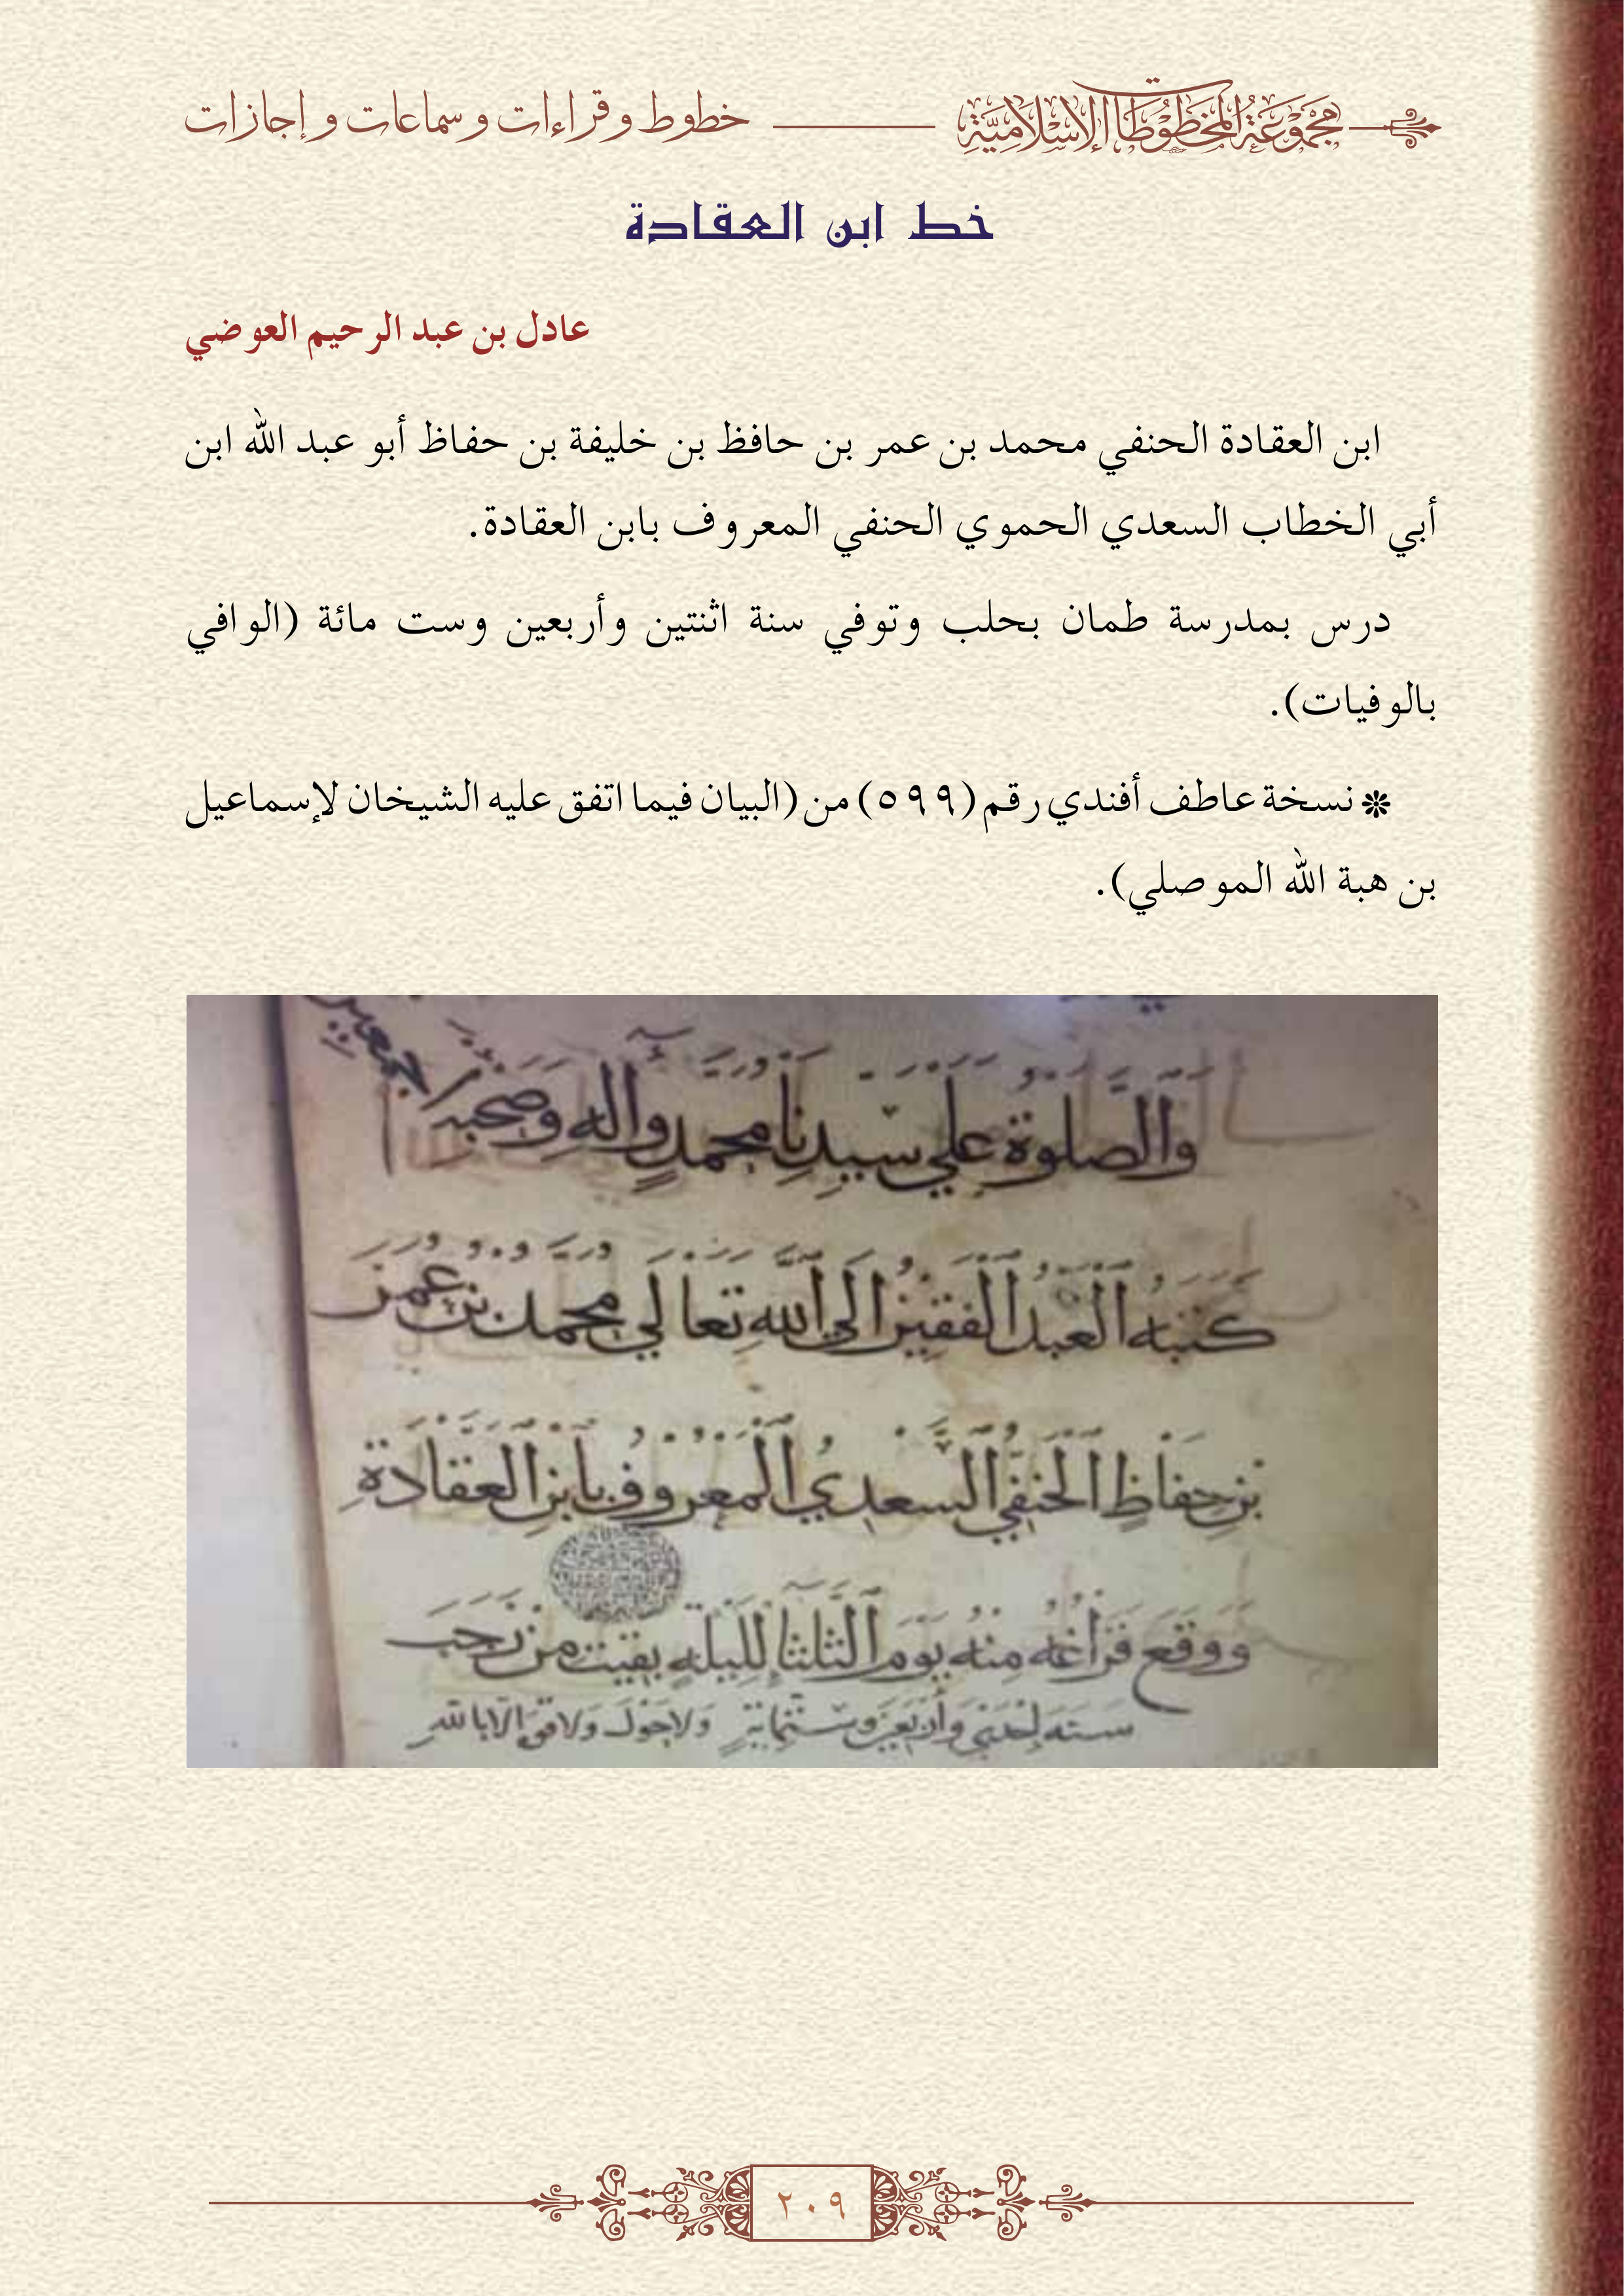 مجموعة المخطوطات الإسلامية
خطوط وقراءات وسماعات وإجازات
خط ابن العقادة
عادل بن عبد الرحيم العوضي
ابن العقادة الحنفي محمد بن عمر بن حافظ بن خليفة بن حفاظ أبو عبد الله ابن
أبي الخطاب السعدي الحموي الحنفي المعروف بابن العقادة.
درس بمدرسة طمان بحلب وتوفي سنة اثنتين وأربعين وست مائة (الوافي
بالوفيات).
❋ نسخة عاطف أفندي رقم (٥٩٩) من (البيان فيما اتفق عليه الشيخان لإسماعيل
بن هبة الله الموصلي).
والصلوة علي سيدنا محمد وآله وصحبه
كتبه العبد الفقير الى الله تعالي محمد بن عمر
بن حفاظ الحنفي السعدي المعروف بابن العقادة
ووقع فراغه منه يوم الثلثا لليلة بقيت من رجب
سنه إحدى وأربعين وستمایة ولا حول ولا قوة الا بالله
٢٠٩